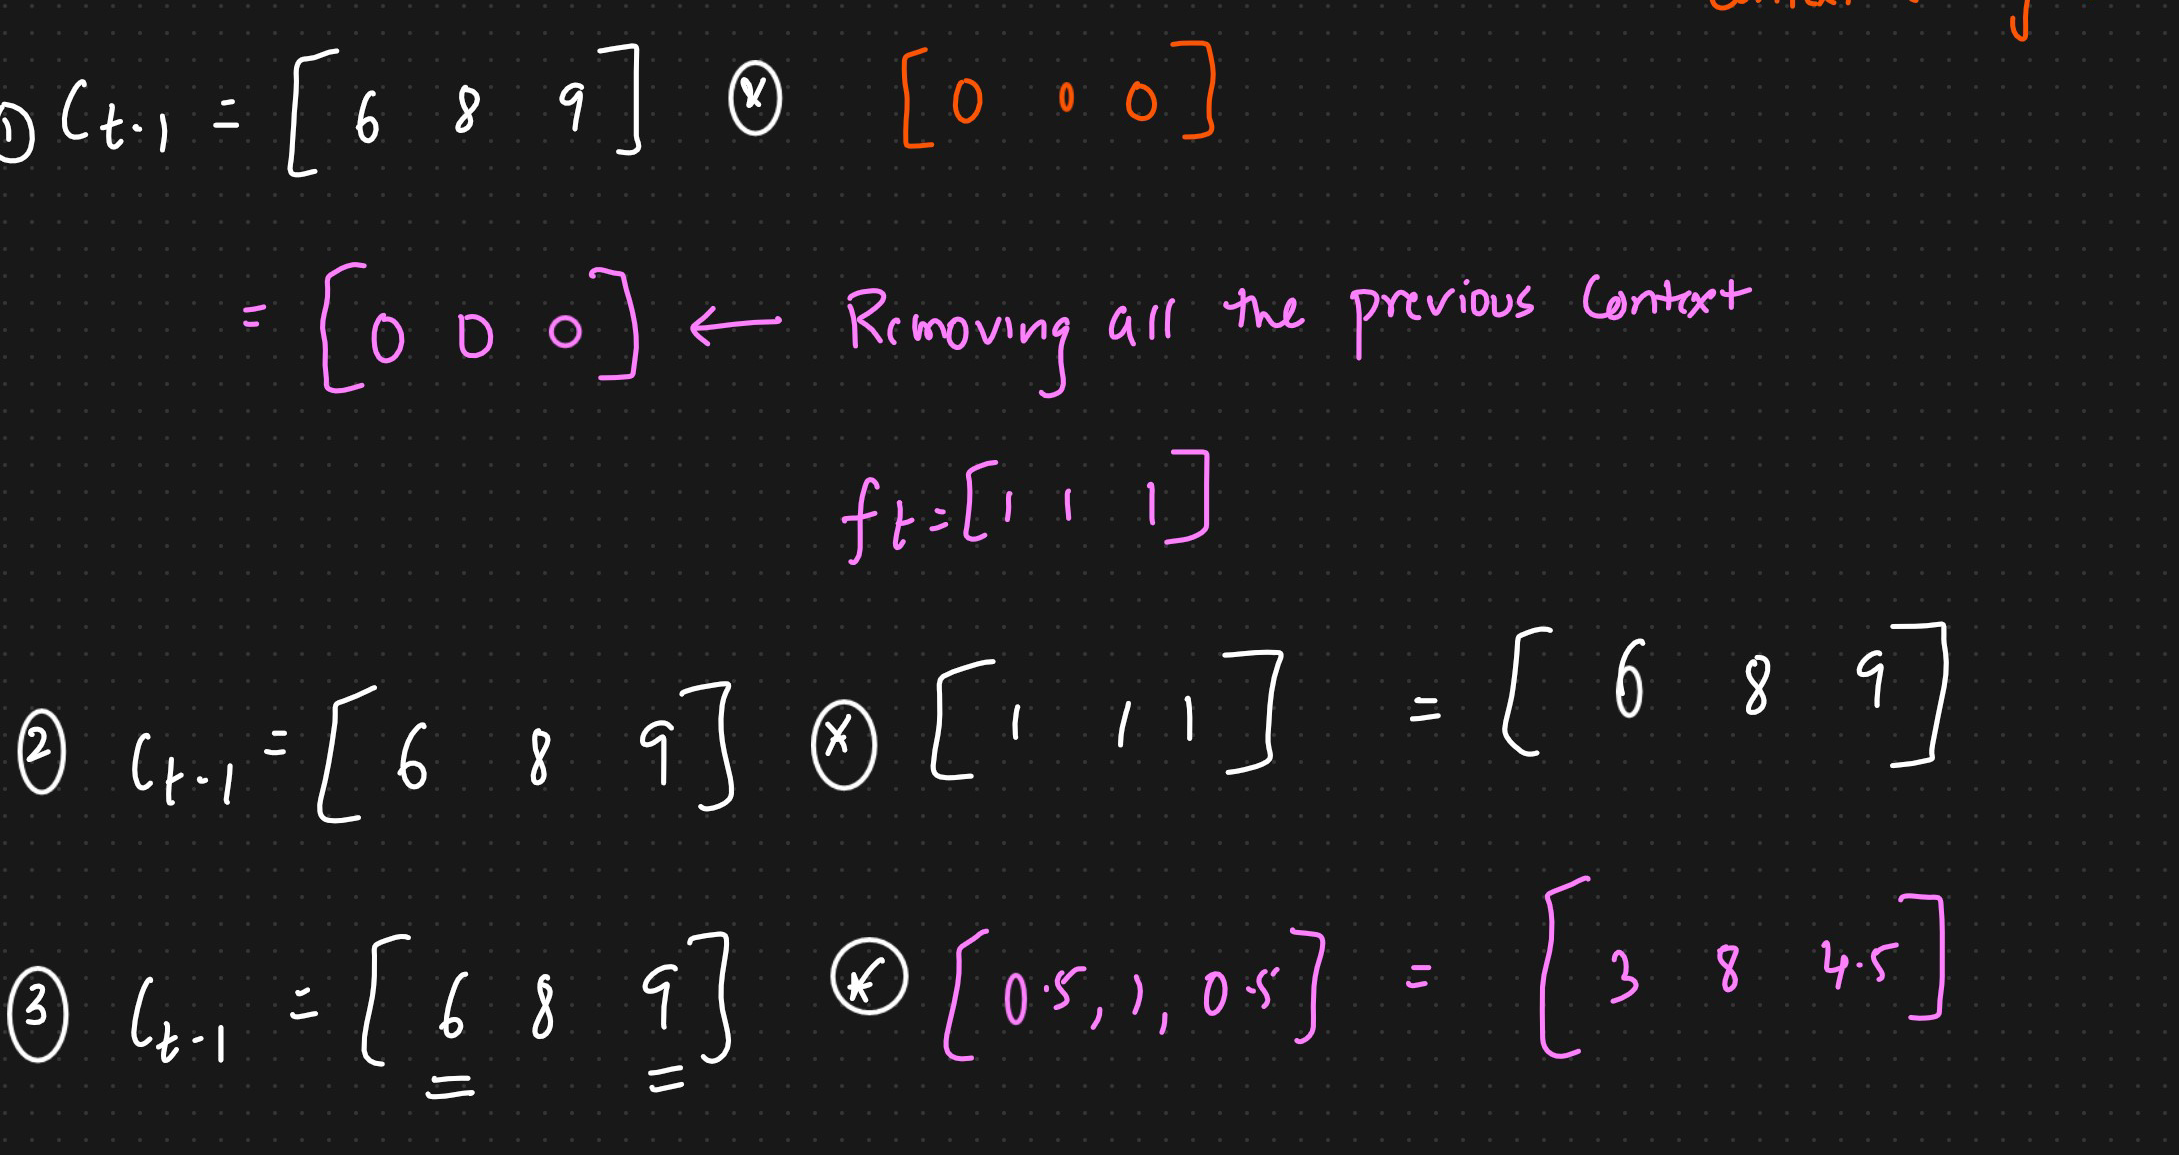 ① C t-1 = [ 6 8 9 ] ⊗ [ 0 0 0 ]
= [ 0 0 0 ] ← Removing all the previous Context
ft = [ 1 1 1 ]
② C t-1 = [ 6 8 9 ] ⊗ [ 1 1 1 ] = [ 6 8 9 ]
③ C t-1 = [ 6 8 9 ] ⊗ [ 0.5, 1, 0.5 ] = [ 3 8 4.5 ]